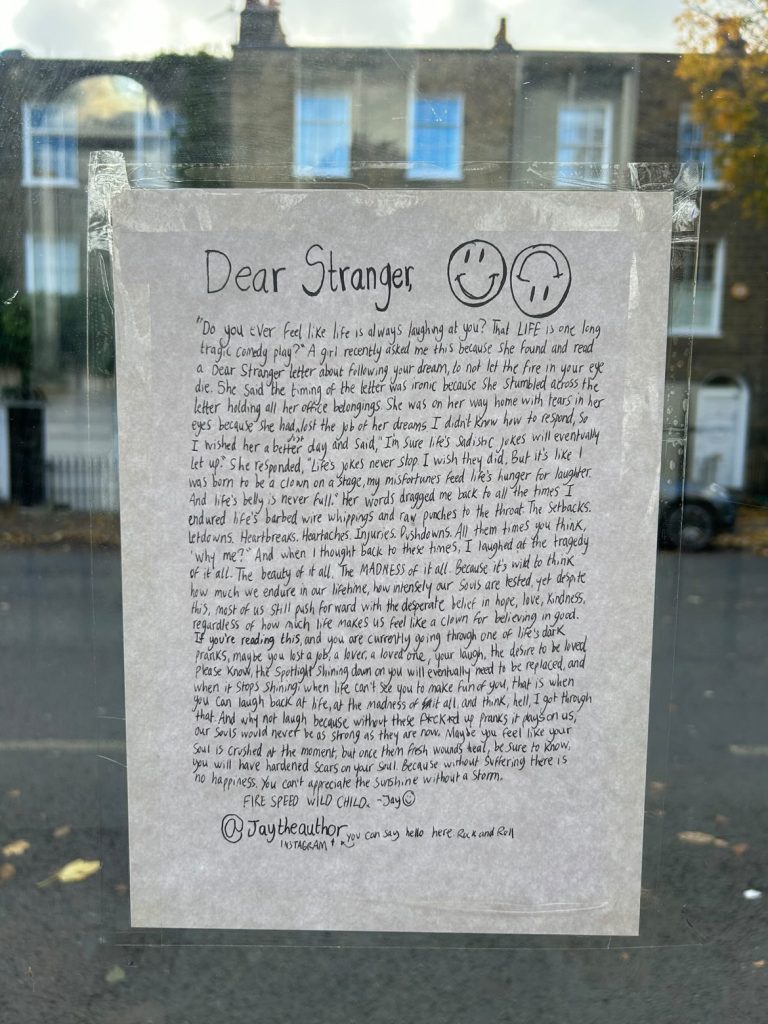 Dear Stranger,
"Do you ever feel like life is always laughing at you? That LIFE is one long
tragic comedy play?" A girl recently asked me this because she found and read
a Dear Stranger letter about following your dream, to not let the fire in your eye
die. She said the timing of the letter was ironic because she stumbled across the
letter holding all her office belongings. She was on her way home with tears in her
eyes because she had just lost the job of her dreams. I didn't know how to respond, so
I wished her a better day and said, "I'm sure life's sadistic jokes will eventually
let up." She responded, "Life's jokes never stop. I wish they did. But it's like I
was born to be a clown on a stage, my misfortunes feed life's hunger for laughter.
And life's belly is never full." Her words dragged me back to all the times I
endured life's barbed wire whippings and raw punches to the throat. The Setbacks.
Letdowns. Heartbreaks. Heartaches. Injuries. Pushdowns. All them times you think,
'why me?' And when I thought back to these times, I laughed at the tragedy
of it all. The beauty of it all. The MADNESS of it all. Because it's wild to think
how much we endure in our lifetime, how intensely our souls are tested, yet despite
this, most of us still push forward with the desperate belief in hope, love, kindness,
regardless of how much life makes us feel like a clown for believing in good.
If you're reading this, and you are currently going through one of life's dark
pranks, maybe you lost a job, a lover, a loved one, your laugh, the desire to be loved
Please know, the spotlight shining down on you will eventually need to be replaced, and
when it stops shining, when life can't see you to make fun of you, that is when
you can laugh back at life, at the madness of it all, and think, hell, I got through
that. And why not laugh because without these F*CK*D up pranks it plays on us,
our souls would never be as strong as they are now. Maybe you feel like your
soul is crushed at the moment, but once them fresh wounds heal, be sure to know,
you will have hardened scars on your soul. Because without suffering there is
no happiness. You can't appreciate the sunshine without a storm.
FIRE SPEED WILD CHILD. -Jay
@Jaytheauthor
INSTAGRAM you can say hello here. Rock and Roll